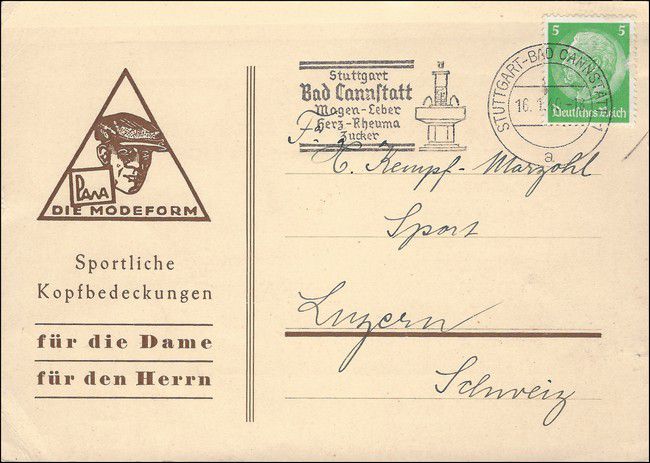 PANA
DIE MODEFORM
Sportliche
Kopfbedeckungen
für die Dame
für den Herrn
Stuttgart
Bad Cannstatt
Magen-Leber
Herz-Rheuma
Zucker
STUTTGART-BAD CANNSTATT 1
16.1.
a
5 5
Deutsches Reich
Fa.
C. Kempf-Marzohl
Sport
Luzern
Schweiz